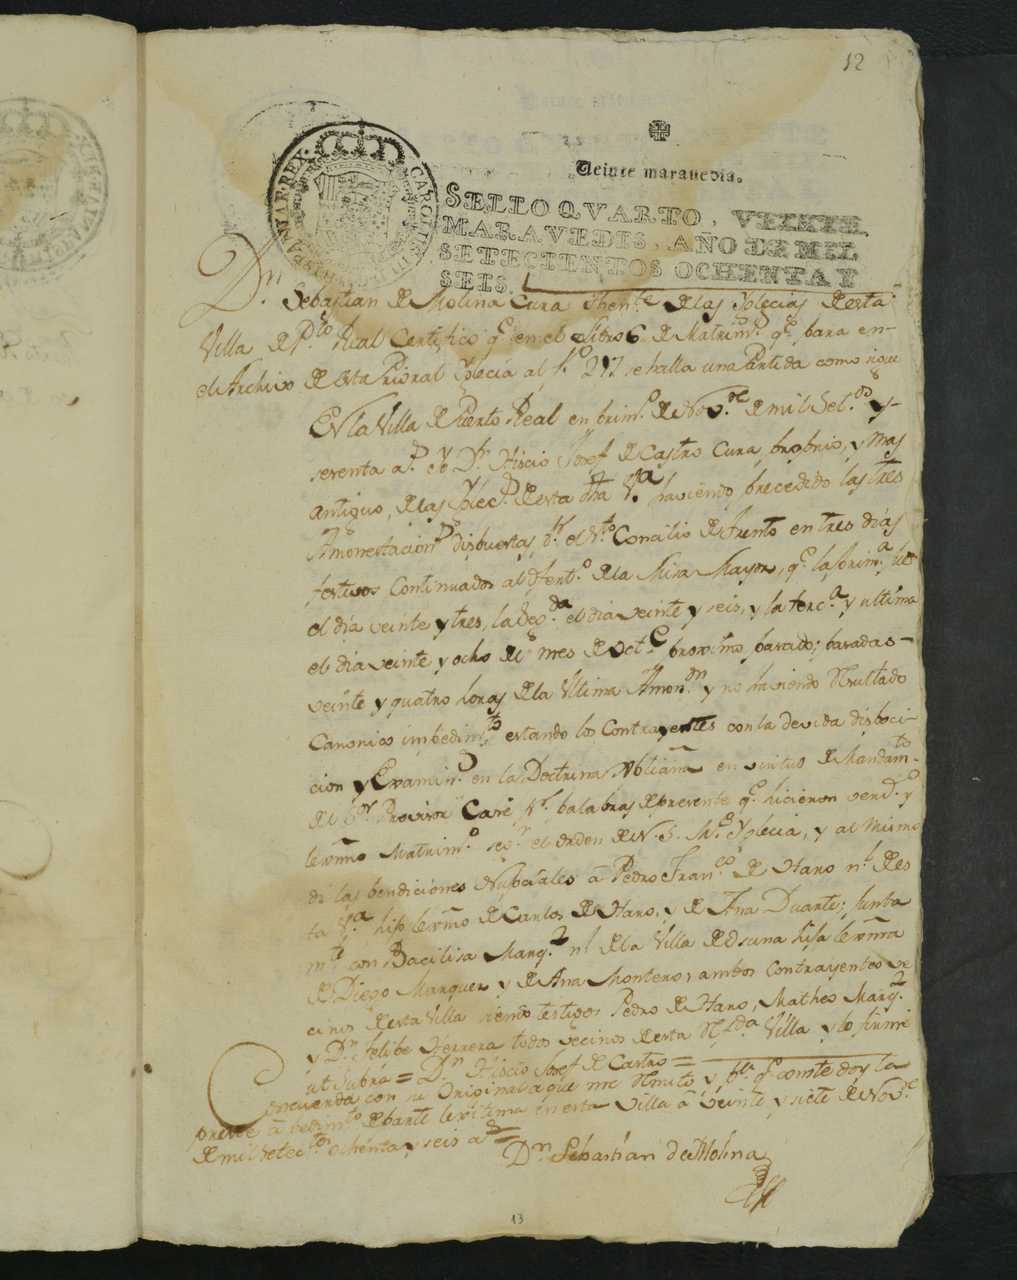 12
Veinte maravedis.
CAROLUS III D. G. HISPANIAR. REX.
SELLO QVARTO, VEINTE
MARAVEDIS, AÑO DE MIL
SETECIENTOS OCHENTA Y
SEIS.
Dn. Sebastian de Molina Cura Thente. de las Yglecias de esta
Villa de Pto. Real Certifico qe. en el Libro 6. de Matrimos. qe. para en
el Archivo de esta Prioral Yglecia al fo. 217. se halla una Partida como sigue
En la Villa de Puerto Real en prim.o de Nove. de mil Setos. y
setenta as. yo Dn. Josef de Castro Cura proprio, y mas
antiguo, de las Yglec.s de esta dha Va. haviendo precedido las tres
Amonestacions. dispuestas pr. el Sto. Concilio de Trento en tres dias
festivos continuados al Ofert.o de la Misa Mayor, qe. la prima. fue
el dia veinte y tres, la Segda. el dia veinte y seis, y la terca. y ultima
el dia veinte y ocho del mes de Octe. proximo pasado; pasadas
veinte y quatro horas de la Ultima Amonon. y no haviendo Resultado
Canonico impedimto. estando los Contrayentes con la devida dispoci-
cion y Examins. en la Doctrina Xptiana en virtud de Mandamto.
del Sr. Provisor Casé pr. palabras de presente qe. hicieron verd.o y
lexmo. Matrimo. segn. el orden de N. S. Me. Yglecia, y al mismo
di las bendiciones Nupciales â Pedro Franco. de Haro nl. de es
ta Va. hijo lexmo. de Carlos de Haro, y de Ana Duarte; junta
mte. con Bacilisa Marqz. nl. de la Villa de Osuna hija lexma.
de Diego Marquez y de Ana Montero, ambos Contrayentes ve
cinos de esta Villa siendo testigos Pedro de Haro, Matheo Marqz.
y Dn. Felipe Herrera todos vecinos de esta Rda. Villa y lo firmé
ut supra = Dn. Josef de Castro =
Concuerda con su Original a que me Remito y pa. qe. conste doy la
presente â pedimto. de parte lexitima en esta Villa â veinte y siete de Nove.
de mil setectos. ochenta y seis as. =
Dn. Sebastian de Molina
13